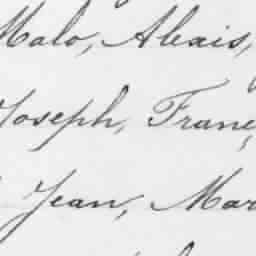 Malo, Alexis,
Joseph, Franç
Jean, Mar